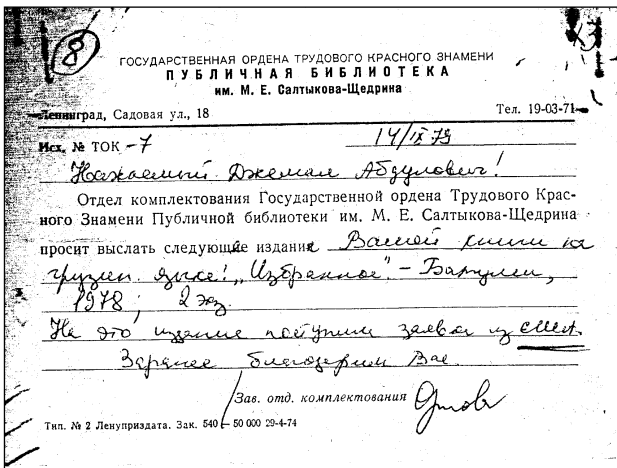 8
ГОСУДАРСТВЕННАЯ ОРДЕНА ТРУДОВОГО КРАСНОГО ЗНАМЕНИ
ПУБЛИЧНАЯ БИБЛИОТЕКА
им. М. Е. Салтыкова-Щедрина
Ленинград, Садовая ул., 18 Тел. 19-03-71
Исх. № ТОК -7 14/IX 79
Уважаемый Джемал Абдулович!
Отдел комплектования Государственной ордена Трудового Крас-
ного Знамени Публичной библиотеки им. М. Е. Салтыкова-Щедрина
просит выслать следующие издания Вашей книги на
грузин. языке: „Избранное". – Батуми,
1978; 2 экз.
На это издание поступили заявки из США.
Заранее благодарим Вас.
Зав. отд. комплектования
Тип. № 2 Ленуприздата. Зак. 540 — 50 000 29-4-74